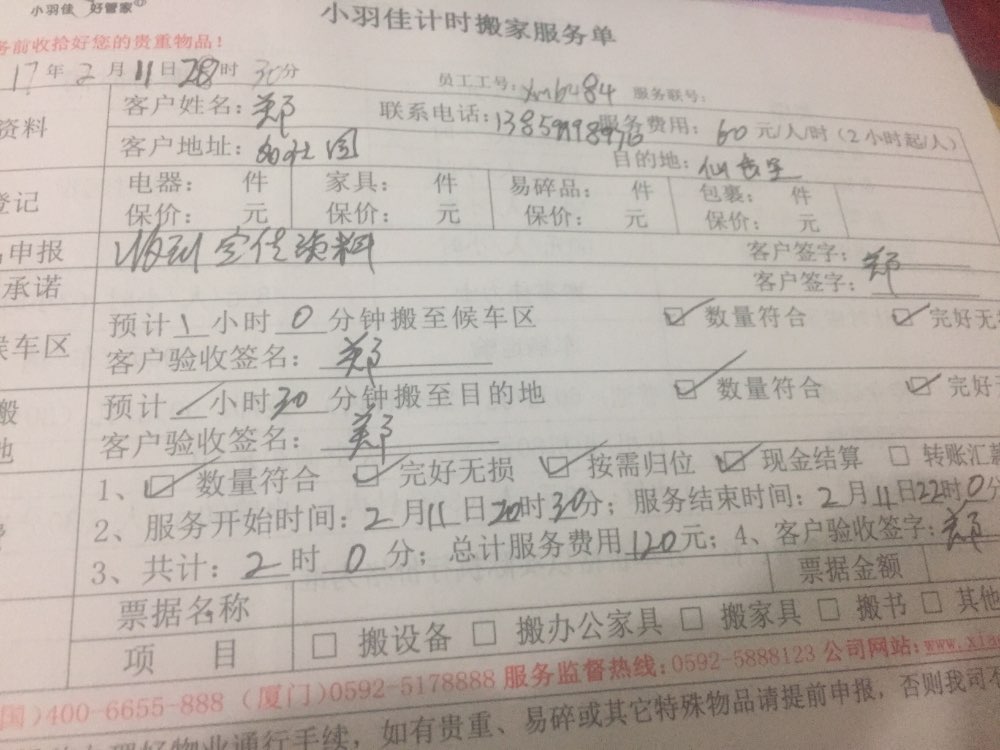 小羽佳 好管家
小羽佳计时搬家服务单
务前收拾好您的贵重物品！
17年2月11日 时30分 员工工号： 服务联号：
资料 客户姓名：郑 联系电话： 服务费用：60元/人/时（2小时起/人）
客户地址： 目的地：
登记 电器： 件 家具： 件 易碎品： 件 包裹： 件
保价： 元 保价： 元 保价： 元 保价： 元
申报 收到宣传资料 客户签字：郑
承诺 客户签字：
候车区 预计1小时0分钟搬至候车区 ☑ 数量符合 ☑ 完好无损
客户验收签名：郑
搬 预计 小时30分钟搬至目的地 ☑ 数量符合 ☑ 完好
地 客户验收签名：郑
1、☑ 数量符合 ☑ 完好无损 ☑ 按需归位 ☑ 现金结算 □ 转账汇
2、服务开始时间：2月11日20时30分；服务结束时间：2月11日22时0分
3、共计：2时0分；总计服务费用120元；4、客户验收签字：郑
票据名称 票据金额
项 目 □ 搬设备 □ 搬办公家具 □ 搬家具 □ 搬书 □ 其他
国)400-6655-888 (厦门)0592-5178888 服务监督热线:0592-5888123 公司网站:www.xia
理好物业通行手续，如有贵重、易碎或其它特殊物品请提前申报，否则我司不